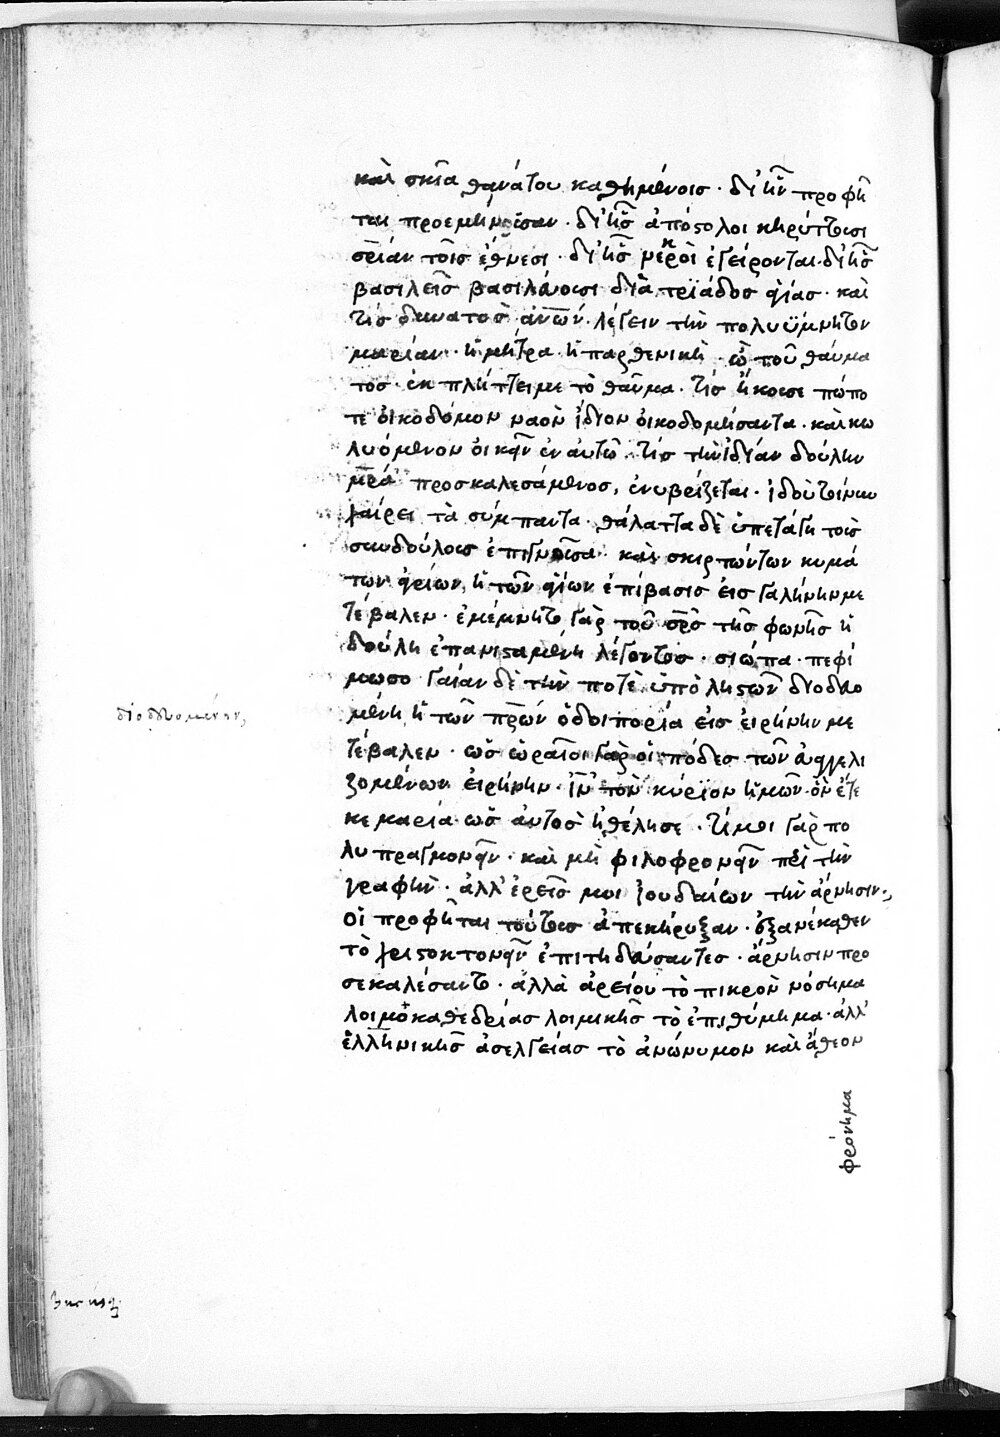 καὶ σκιᾶ θανάτου καθημένοισ · δι' ἣν προφῆ
ται προεμήνυσαν · δι' ἧς ἀπόστολοι κηρύττουσι
σ̅ρίαν τοῖσ ἔθνεσι · δι' ἧς νεκροὶ ἐγείρονται · δι' ἧς
βασιλεῖσ βασιλεύουσι διὰ τριάδοσ ἁγίασ · καὶ
τίσ δυνατὸσ ἀν̅ων λέγειν τὴν πολυΰμνητον
μαρίαν · ἡ μήτρα ἡ παρθενικὴ · ὢ τοῦ θαύμα
τοσ · ἐκπλήττει με τὸ θαῦμα · τίσ ἤκουσε πώπο
τε οἰκοδόμον ναὸν ἴδιον οἰκοδομήσαντα · καὶ κω
λυόμενον οἰκεῖν ἐν αὐτῶ · τίσ τὴν ἰδίαν δούλην
μ̅ρα προσκαλεσάμενοσ, ἐνυβρίζεται · ἰδοὺ τοίνυν
χαίρει τὰ σύμπαντα · θάλαττα δὲ ὑπετάγη τοῖσ
συνδούλοισ ἐπιγνοῦσα · καὶ σκιρτώντων κυμά
των ἀγρίων, ἡ τῶν ἁγίων ἐπίβασισ εἰσ γαλήνην με
τέβαλεν · ἐμέμνητο γὰρ τοῦ σ̅ρσ τῆσ φωνῆσ ἡ
δούλη ἐπανισταμένη λέγοντοσ · σιώπα · πεφί
μωσο · γαίαν δὲ τὴν ποτὲ ὑπὸ ληστῶν διοδευο
μένη ἡ τῶν π̅ρων ὁδοιπορία εἰσ εἰρήνην με
τέβαλεν · ὡσ ὡραῖοι γὰρ οἱ πόδεσ τῶν εὐαγγελι
ζομένων εἰρήνην · ι̅ν τὸν κύριον ἡμῶν · ὃν ἔτε
κε μαρία ὡσ αὐτὸσ ἠθέλησε · τί μοι γὰρ πο
λυπραγμονεῖν · καὶ μὴ φιλοφρονεῖν περὶ τὴν
γραφὴν · ἀλλ' ἐρεῖσ μοι ἰουδαίων τὴν ἄρνησιν
οἱ προφῆται τούτουσ ἀπεκήρυξαν · ἐξ ἀνέκαθεν
τὸ χριστοκτονεῖν ἐπιτηδεύσαντεσ · ἄρνησιν προ
σεκαλέσαντο · ἀλλὰ ἀρείου τὸ πικρὸν νόσημα
λοιμοκαθεδρίασ λοιμικῆσ τὸ ἐπιθύμημα · ἀλλ'
ἑλληνικῆσ ἀσελγείασ τὸ ἀνώνυμον καὶ ἄθεον
φρόνημα
διοδευομένην